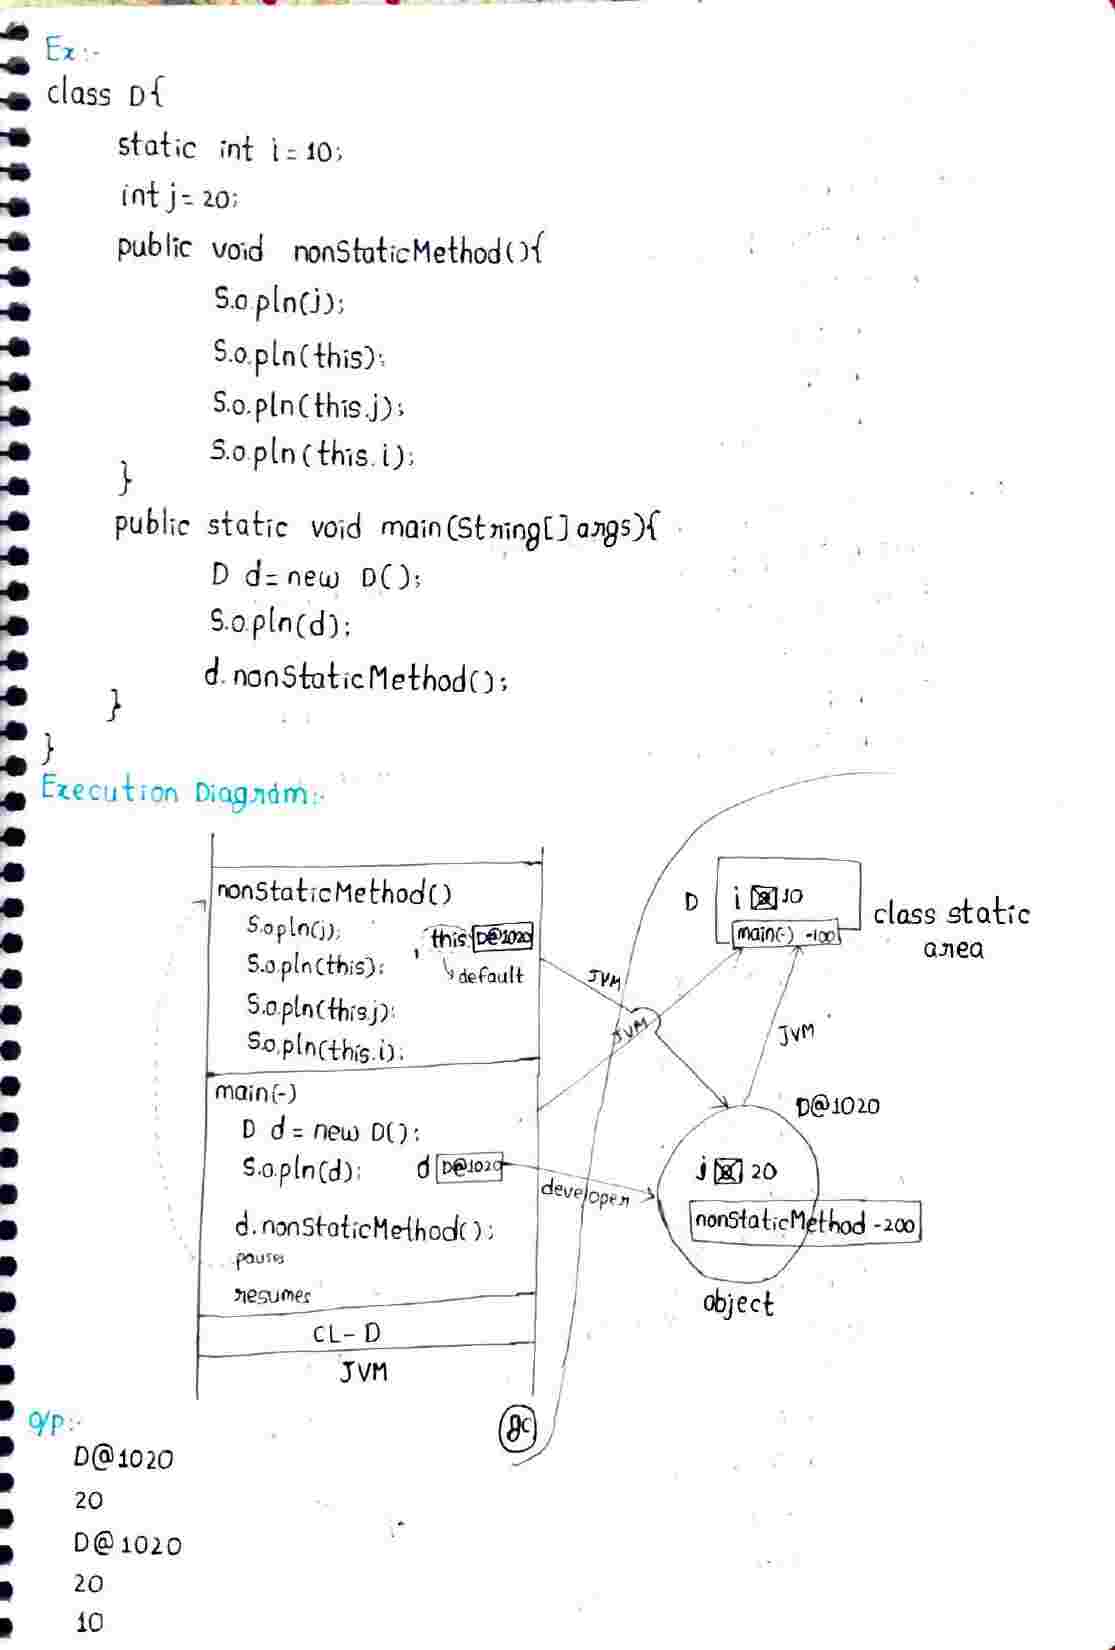 Ex:-
class D{
static int i = 10;
int j = 20;
public void nonStaticMethod(){
S.o.pln(j);
S.o.pln(this);
S.o.pln(this.j);
S.o.pln(this.i);
}
public static void main(String[] args){
D d = new D();
S.o.pln(d);
d.nonStaticMethod();
}
}
Execution Diagram:-
nonStaticMethod()
S.o.pln(j);
this D@1020
S.o.pln(this);
default
S.o.pln(this.j);
S.o.pln(this.i);
main(-)
D d = new D();
S.o.pln(d);
d D@1020
d.nonStaticMethod();
pauses
resumes
CL-D
JVM
D
i 10
main(-) -100
class static
area
JVM
JVM
JVM
developer
D@1020
j 20
nonStaticMethod -200
object
gc
o/p:-
D@1020
20
D@1020
20
10